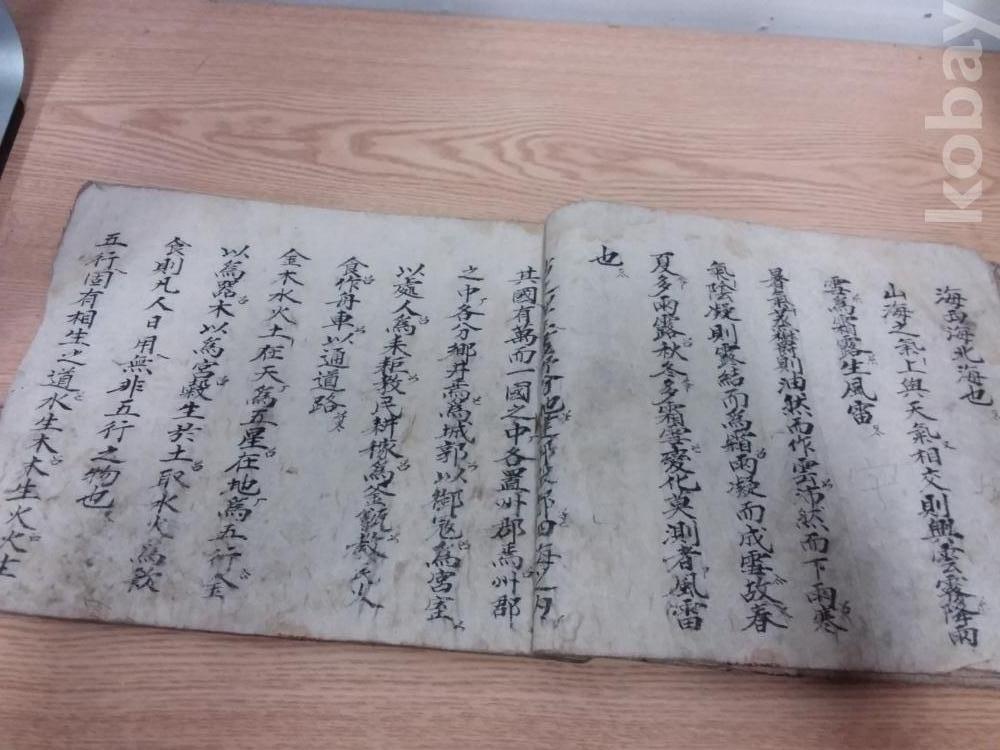 海西海北海也
山海之氣上與天氣相交則興雲霧降雨
雪爲霜露生風雷
暑氣蒸鬱則油然而作雲沛然而下雨寒
氣陰凝則露結而爲霜雨凝而成雪故春
夏多雨露秋冬多霜雪變化莫測者風雷
也
其國有萬而一國之中各置州郡焉州郡
之中各分鄕井焉爲城郭以御寇爲宮室
以處人爲耒耟敎民耕稼爲釜甑敎民火
食作舟車以通道路
金木水火土在天爲五星在地爲五行金
以爲器木以爲宮穀生於土取水火爲飮
食則凡人日用無非五行之物也
五行固有相生之道水生木木生火火生
kobay